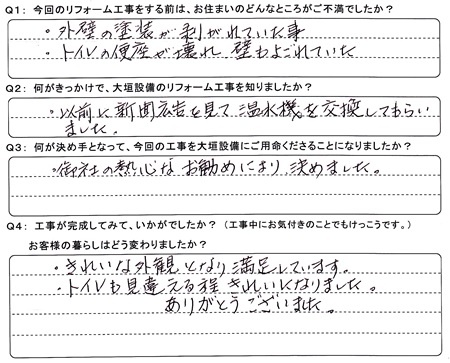 Q1：今回のリフォーム工事をする前は、お住まいのどんなところがご不満でしたか？
・外壁の塗装が剥がれていた事
・トイレの便座が壊れ、壁もよごれていた
Q2：何がきっかけで、大垣設備のリフォーム工事を知りましたか？
・以前に新聞広告を見て温水機を交換してもらい
ました。
Q3：何が決め手となって、今回の工事を大垣設備にご用命くださることになりましたか？
・御社の熱心なお勧めにより決めました。
Q4：工事が完成してみて、いかがでしたか？（工事中にお気付きのことでもけっこうです。）
お客様の暮らしはどう変わりましたか？
・きれいな外観となり満足しています。
・トイレも見違える程きれいになりました。
ありがとうございました。